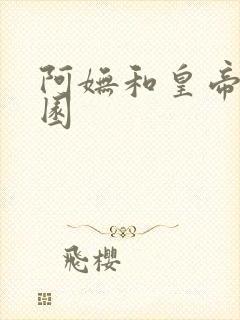 阿嫵和皇帝
園
飛櫻